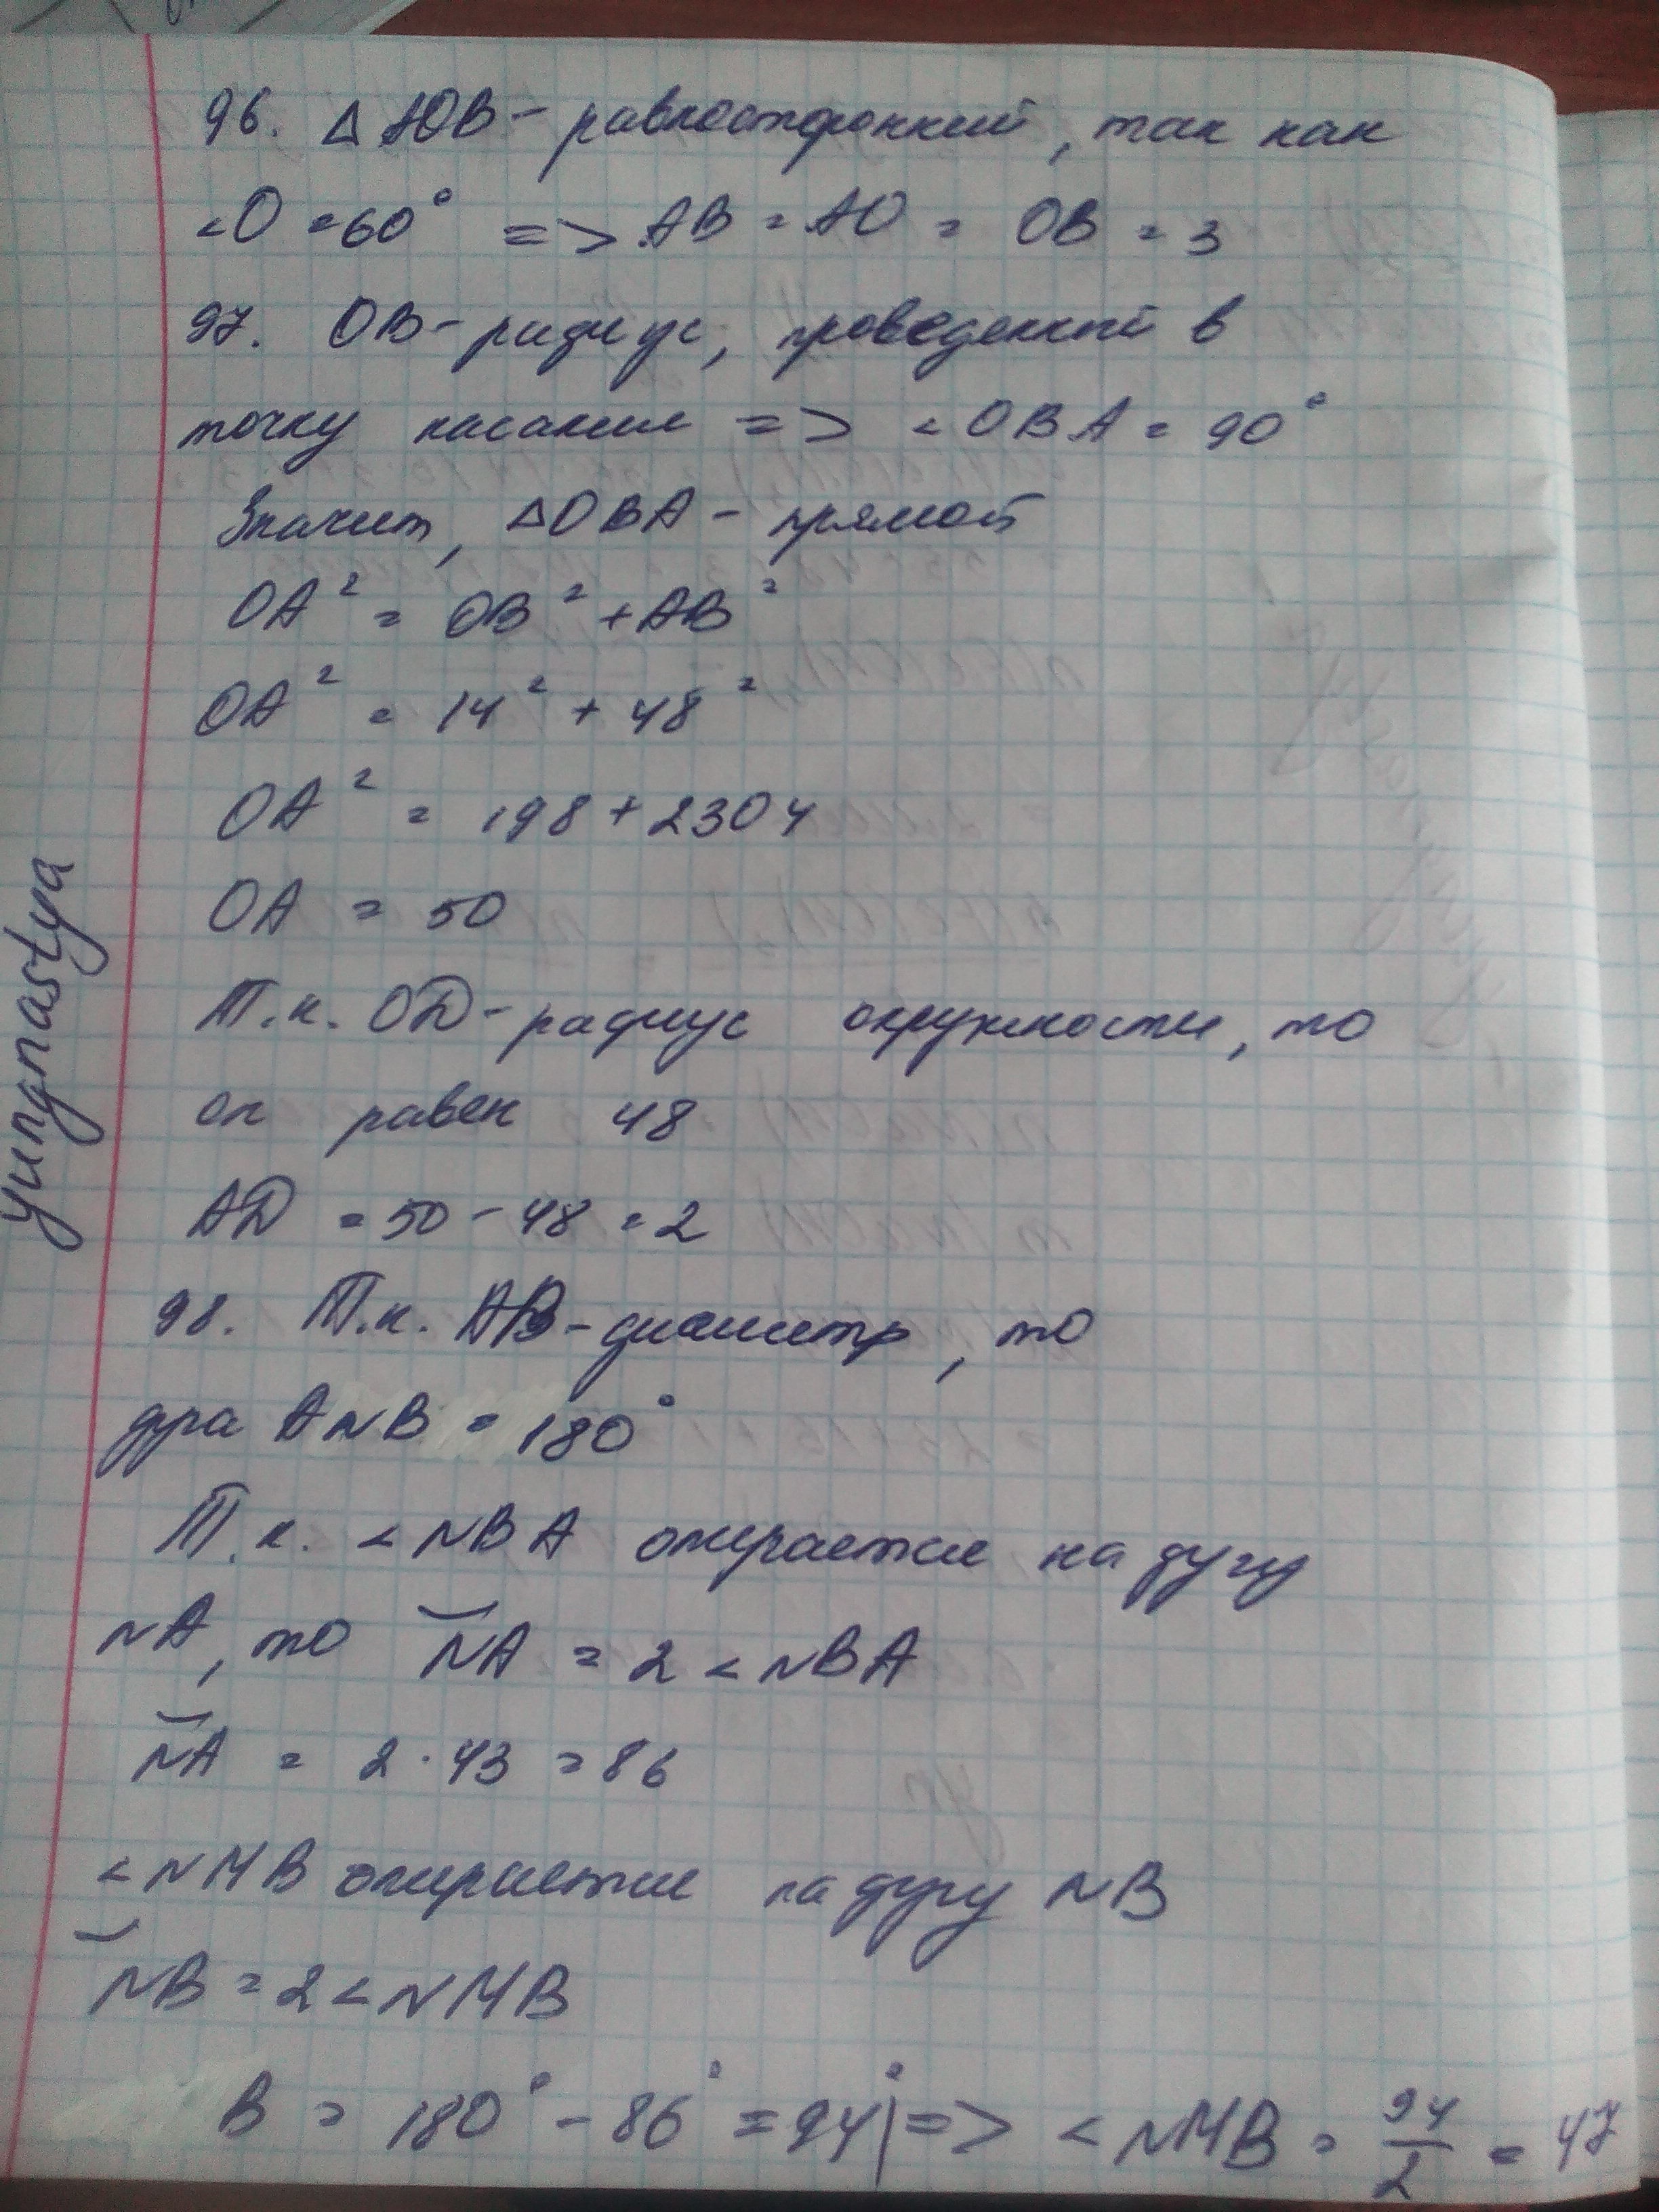 96. △ AOB - равносторонний, так как
<O = 60° => AB = AO = OB = 3
97. OB - радиус, проведенный в
точку касания => <OBA = 90°
Значит, △OBA - прямой
OA² = OB² + AB²
OA² = 14² + 48²
OA² = 198 + 2304
OA = 50
Т.к. OD - радиус окружности, то
он равен 48
AD = 50 - 48 = 2
98. Т.к. AB - диаметр, то
дуга ANB = 180°
Т.к. <NBA опирается на дугу
NA, то ◡NA = 2 <NBA
◡NA = 2 · 43 = 86
<NMB опирается на дугу NB
◡NB = 2 <NMB
B = 180° - 86° = 94°| => <NMB = 94/2 = 47
yungnastya